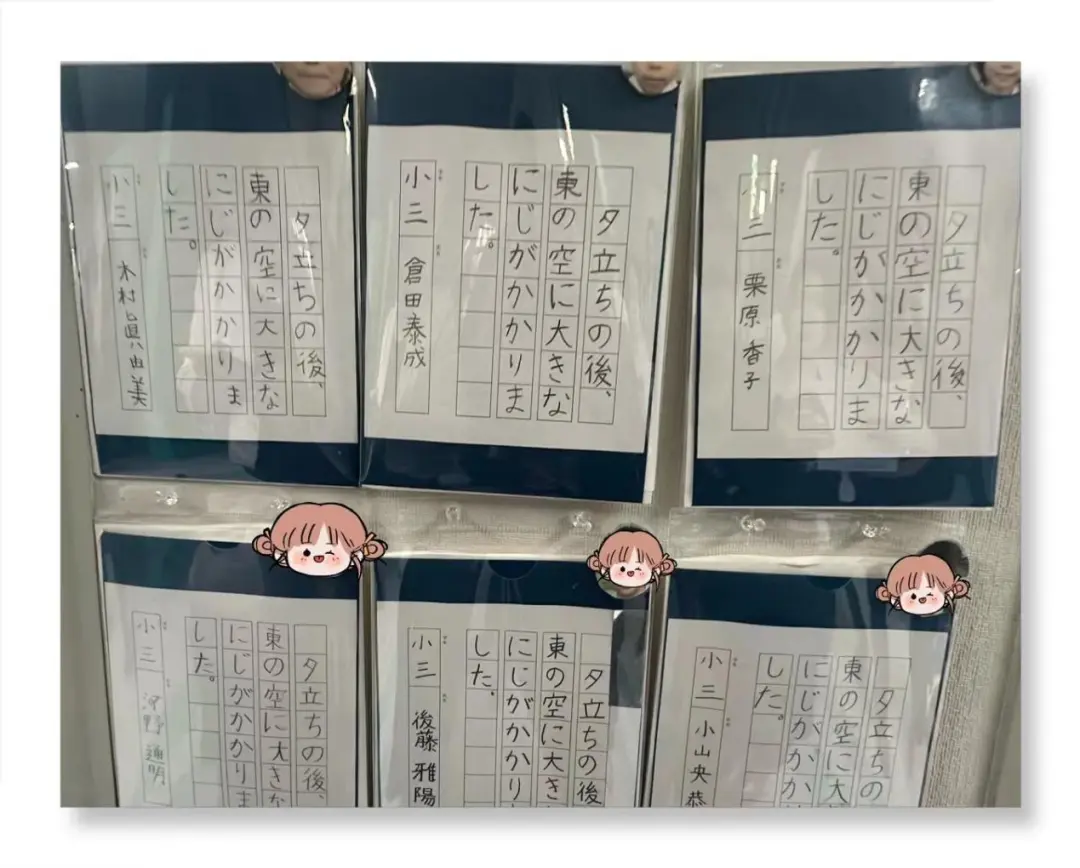 夕立ちの後、
東の空に大きな
にじがかかりま
した。
小三 栗原香子
夕立ちの後、
東の空に大きな
にじがかかりま
した。
小三 倉田泰成
夕立ちの後、
東の空に大きな
にじがかかりま
した。
小三 木村眞由美
夕立ちの
東の空に大
にじがかか
した。
小三 小山央恭
夕立ちの後
東の空に大き
にじがかかり
した、
小三 後藤雅陽
夕立ちの後、
東の空に大きな
にじがかかりま
した。
小三 河野通明